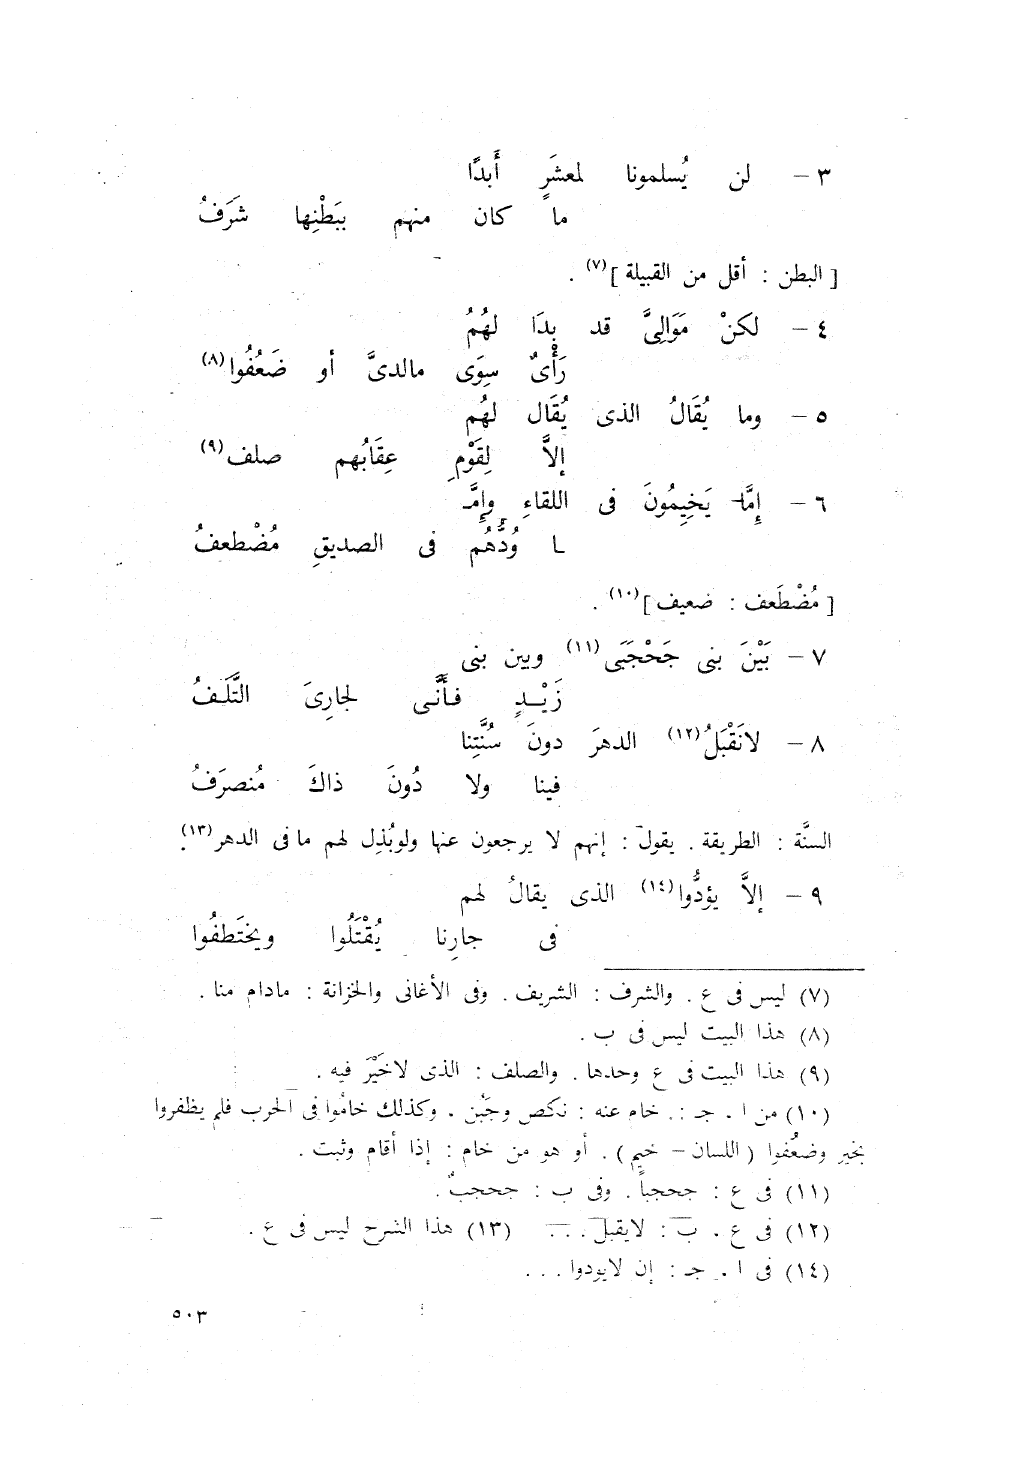 ٣ – لن يُسلمونا لمعشَرٍ أَبدًا
ما كان منهم ببَطْنِها شَرَفُ
[ البطن : أقل من القبيلة ](٧) .
٤ – لكنْ مَوَالِىَّ قد بدَا لهُمُ
رَأْىٌ سِوَى مالدىَّ أو ضَعُفُوا(٨)
٥ – وما يُقَالُ الذى يُقَال لهُم
إلاَّ لِقَوْمٍ عِقَابُهم صلف(٩)
٦ – إِمَّا يَخِيمُونَ فى اللقاءِ وإِمَّـ
ـا وُدُّهُم فى الصديقِ مُضْطعفُ
[ مُضْطَعف : ضعيف ](١٠) .
٧ – بَيْنَ بنى جَحْجَبَى(١١) وبين بنى
زَيْــدٍ فأَنَّى لجارِىَ التَّلَفُ
٨ – لانَقْبَلُ(١٢) الدهرَ دونَ سُنَّتِنا
فينا ولا دُونَ ذاكَ مُنصرَفُ
السنَّة : الطريقة . يقول : إنهم لا يرجعون عنها ولوبُذِل لهم ما فى الدهر(١٣).
٩ – إلاَّ يؤدُّوا(١٤) الذى يقالُ لهم
فى جارِنا يُقْتَلُوا ويختَطفُوا
(٧) ليس فى ع . والشرف : الشريف . وفى الأغانى والخزانة : مادام منا .
(٨) هذا البيت ليس فى ب .
(٩) هذا البيت فى ع وحدها . والصلف : الذى لاخَيْرَ فيه .
(١٠) من ا . جـ : . خام عنه : نكص وجَبُن . وكذلك خامُوا فى الحرب فلم يظفروا
بخير وضعُفوا ( اللسان – خيم ) . أو هو من خام : إذا أقام وثبت .
(١١) فى ع : جحجباً . وفى ب : جحجبٌ .
(١٢) فى ع . ب : لايقبل . . . (١٣) هذا الشرح ليس فى ع .
(١٤) فى ا . جـ : إن لايودوا . . .
٥٠٣